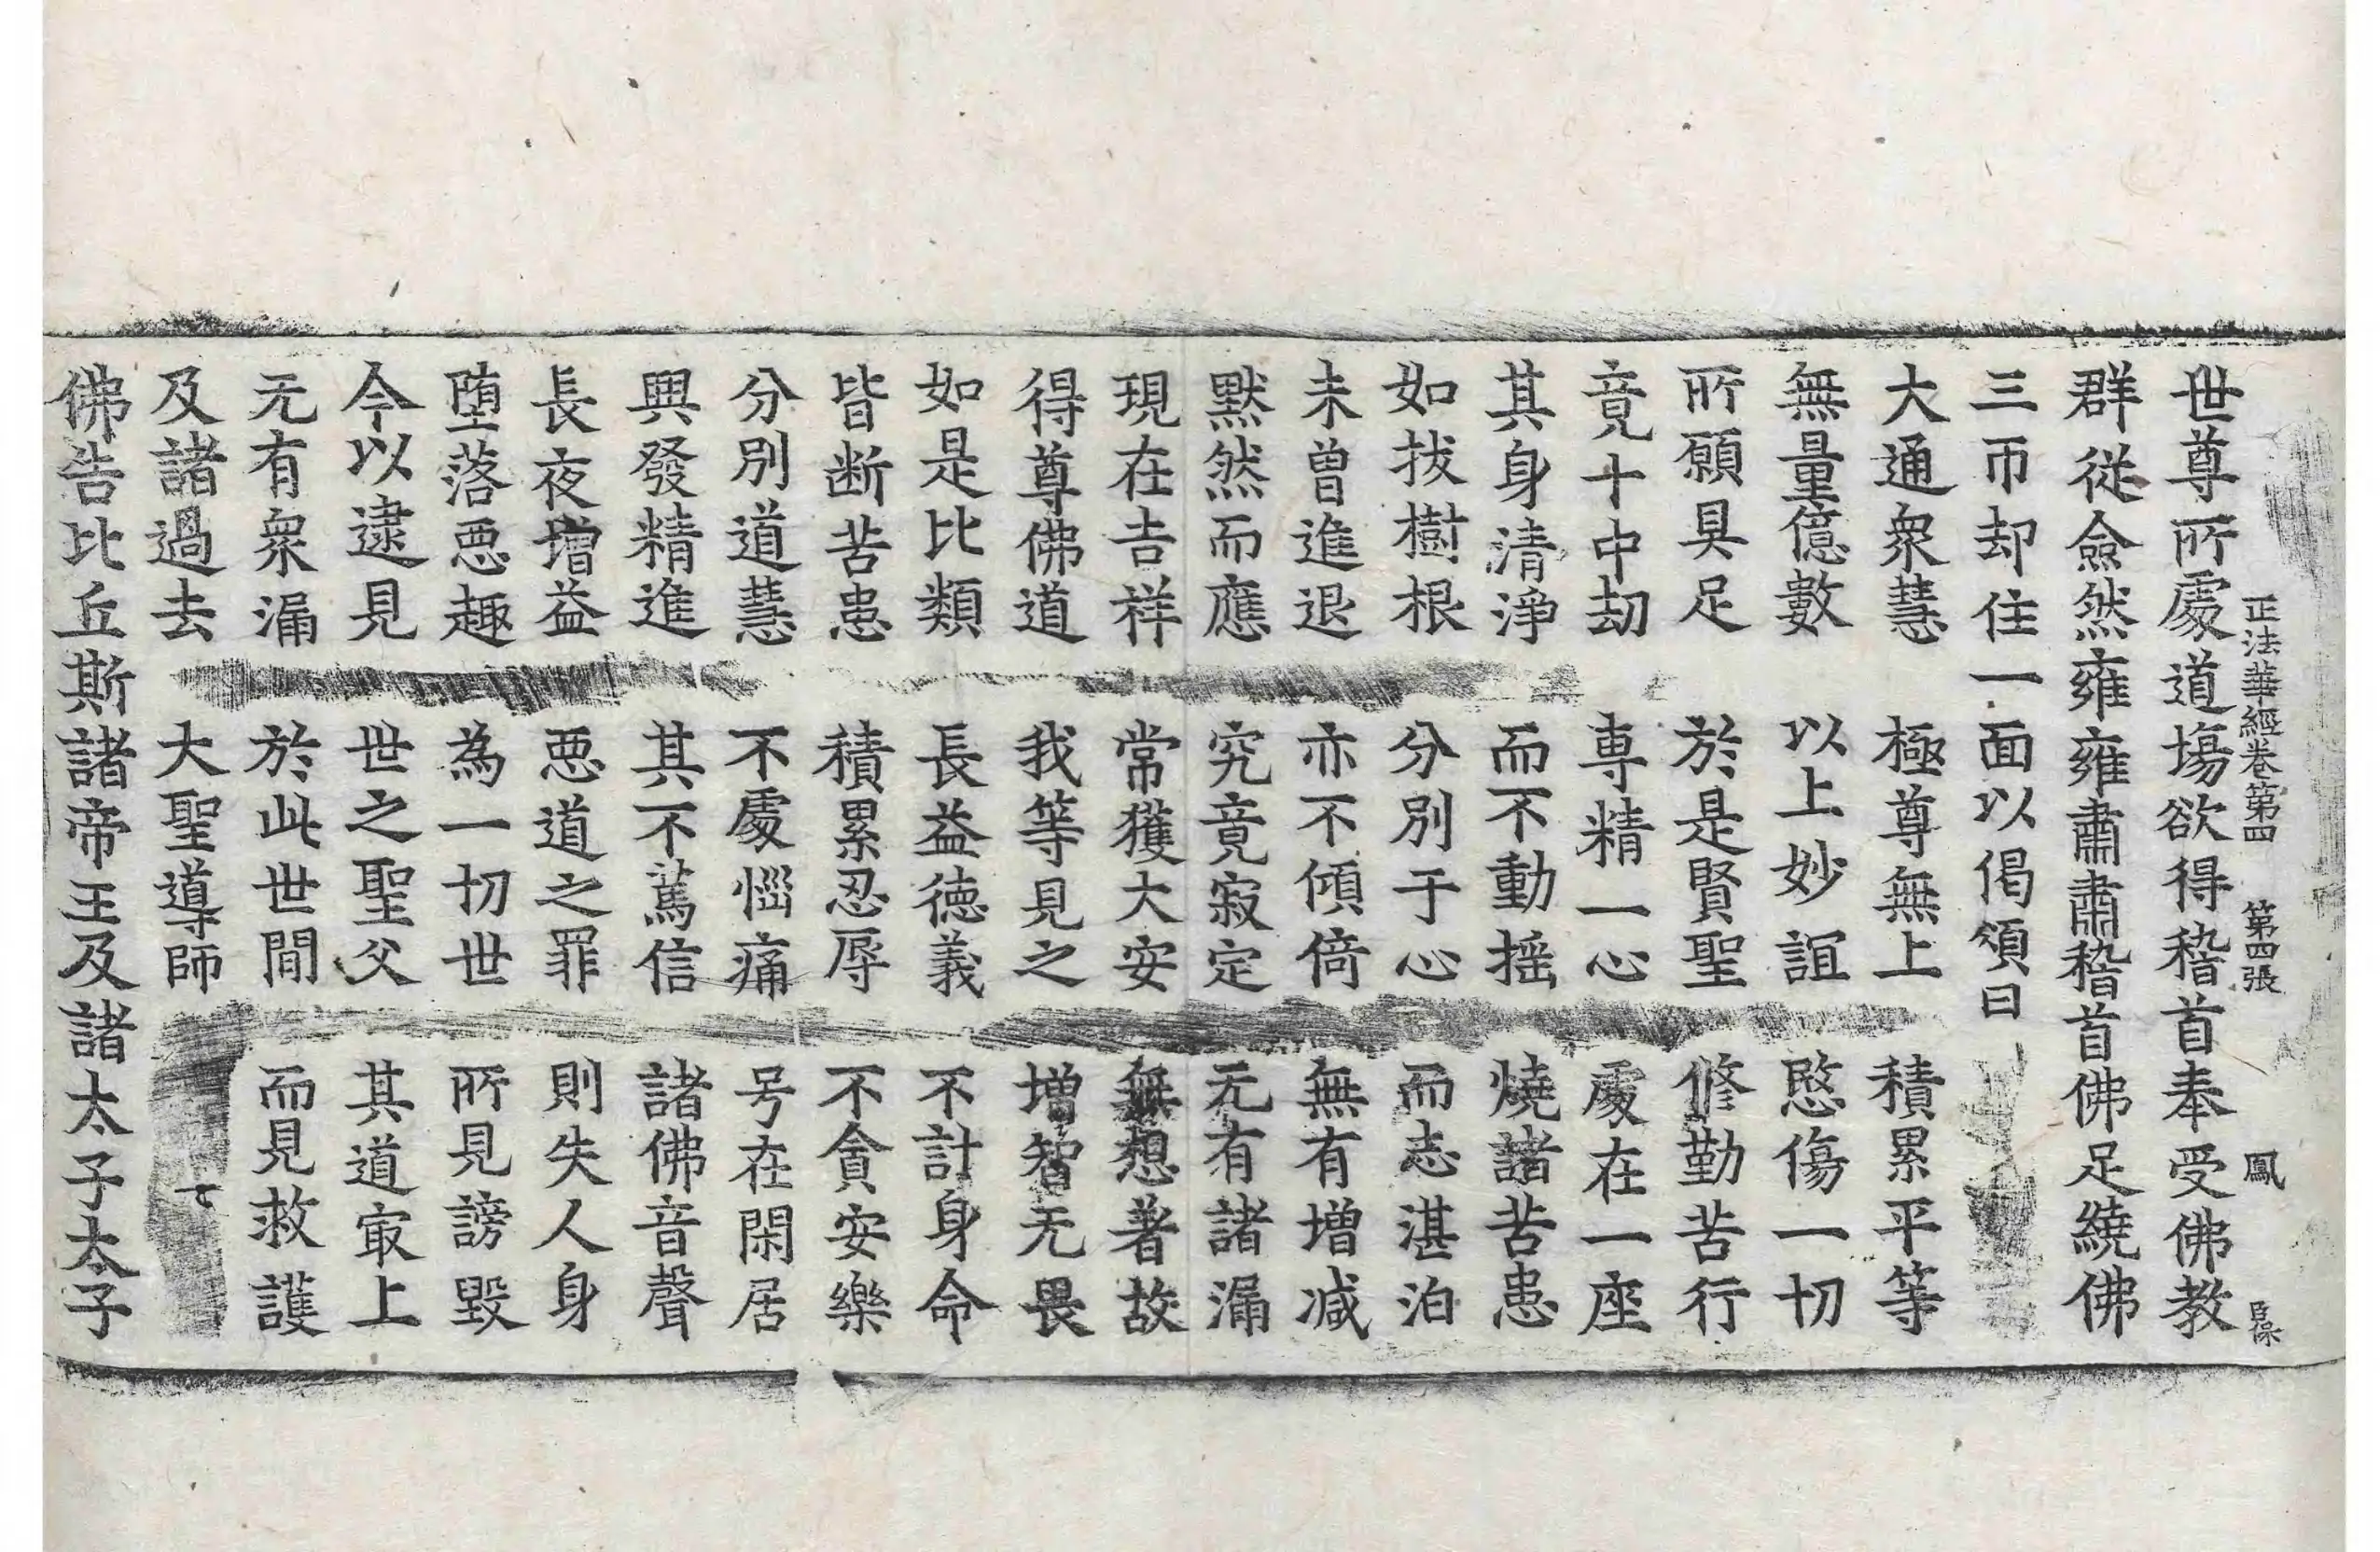 正法華經卷第四　第四張　鳳　臣保
世尊所處道塲欲得稽首奉受佛教
群從僉然雍雍肅肅稽首佛足繞佛
三帀却住一面以偈頌曰
大通衆慧　極尊無上　積累平等
無量億數　以上妙誼　愍傷一切
所願具足　於是賢聖　修勤苦行
竟十中劫　専精一心　處在一座
其身清淨　而不動揺　燒諸苦患
如拔樹根　分別于心　而志湛泊
未曾進退　亦不傾倚　無有增减
默然而應　究竟寂定　无有諸漏
現在吉祥　常獲大安　無想著故
得尊佛道　我等見之　增智无畏
如是比類　長益徳義　不計身命
皆断苦患　積累忍辱　不貪安樂
分別道慧　不處惱痛　号在閑居
興發精進　其不篤信　諸佛音聲
長夜增益　悪道之罪　則失人身
堕落悪趣　為一切世　所見謗毀
今以逮見　世之聖父　其道寂上
无有衆漏　於此世間　而見救護
及諸過去　大聖導師
佛告比丘斯諸帝王及諸太子太子